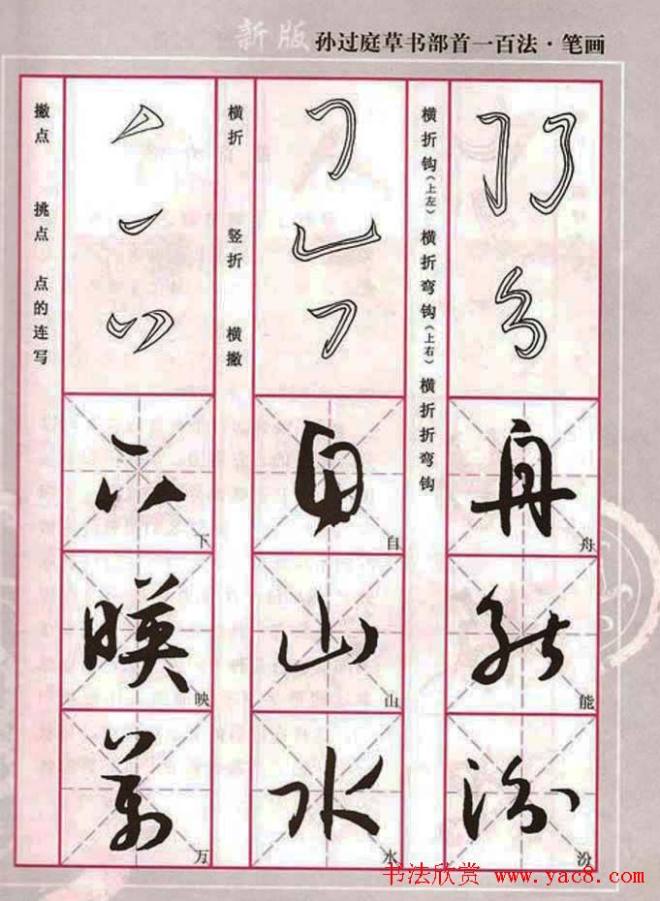 新版 孙过庭草书部首一百法·笔画
撇点 挑点 点的连写
横折 竖折 横撇
横折钩(上左) 横折弯钩(上右) 横折折弯钩
下 自 舟
映 山 能
万 水 汾
书法欣赏 www.yac8.com